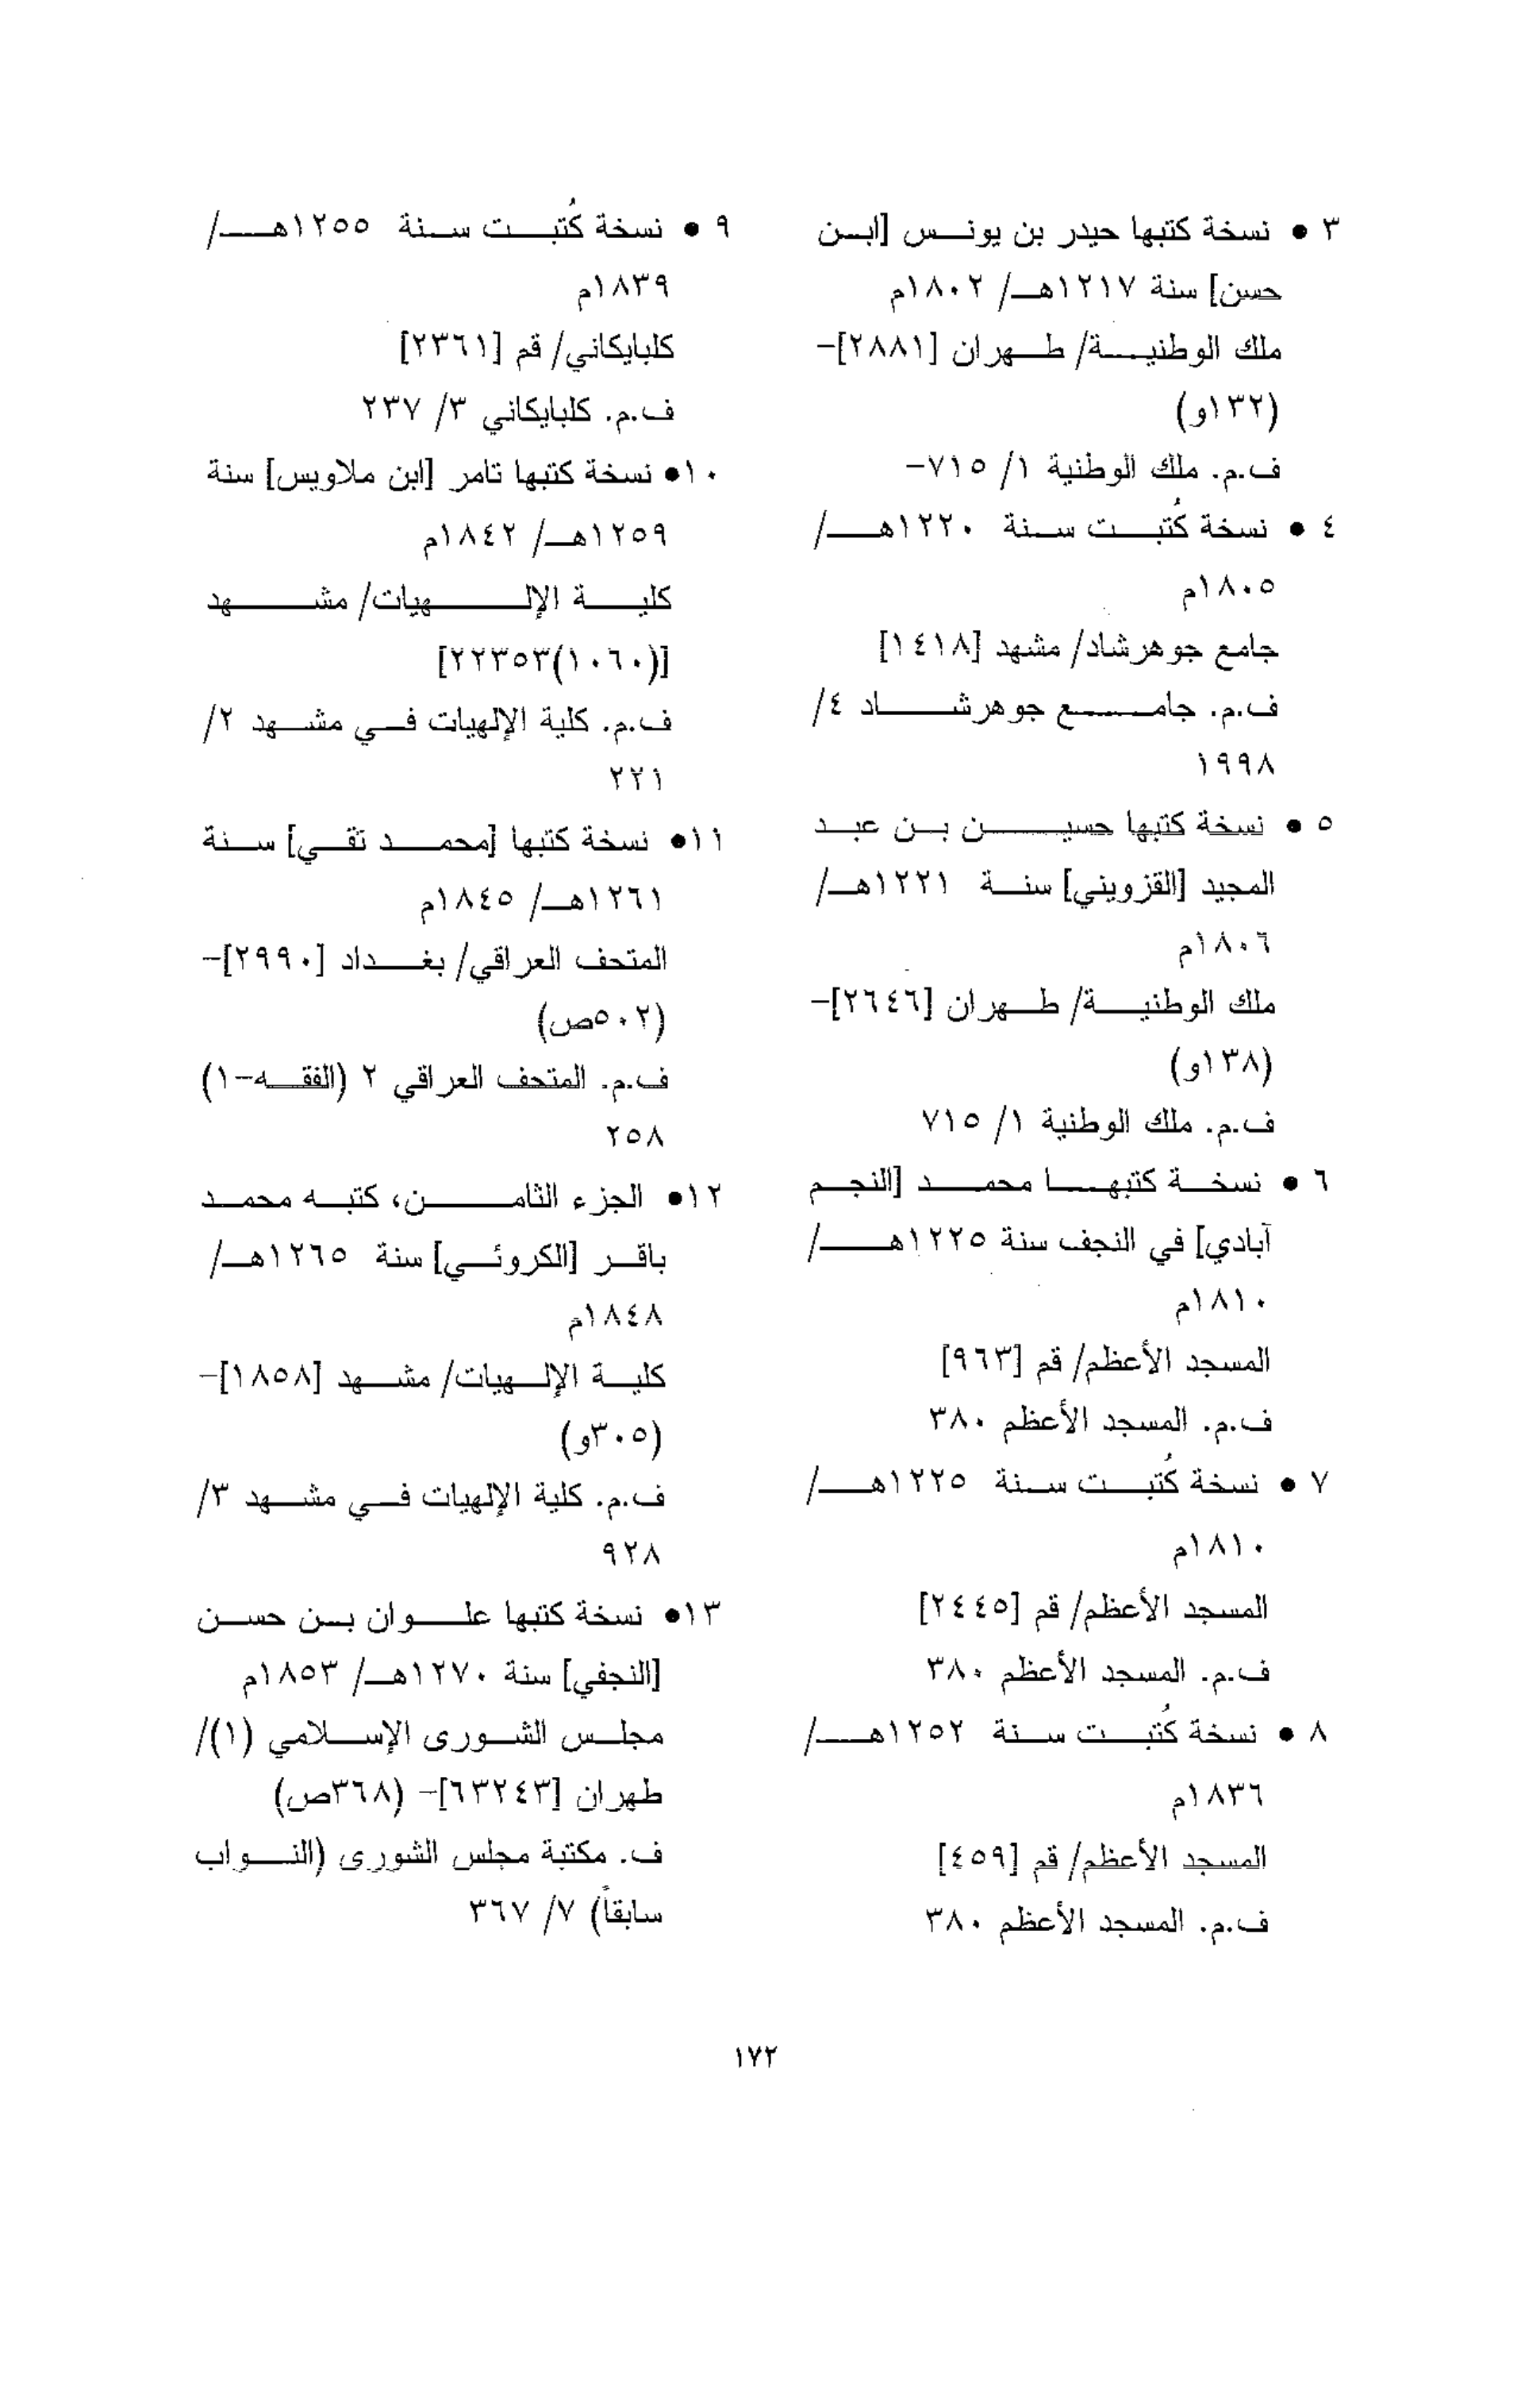 ٣ • نسخة كتبها حيدر بن يونس [ابن
حسن] سنة ١٢١٧هـ/ ١٨٠٢م
ملك الوطنية/ طهران [٢٨٨١]-
(١٣٢و)
ف.م. ملك الوطنية ١/ ٧١٥-
٤ • نسخة كُتبت سنة ١٢٢٠هـ/
١٨٠٥م
جامع جوهرشاد/ مشهد [١٤١٨]
ف.م. جامع جوهرشاد ٤/
١٩٩٨
٥ • نسخة كتبها حسين بن عبد
المجيد [القزويني] سنة ١٢٢١هـ/
١٨٠٦م
ملك الوطنية/ طهران [٢٦٤٦]-
(١٣٨و)
ف.م. ملك الوطنية ١/ ٧١٥
٦ • نسخة كتبها محمد [النجم
آبادي] في النجف سنة ١٢٢٥هـ/
١٨١٠م
المسجد الأعظم/ قم [٩٦٣]
ف.م. المسجد الأعظم ٣٨٠
٧ • نسخة كُتبت سنة ١٢٢٥هـ/
١٨١٠م
المسجد الأعظم/ قم [٢٤٤٥]
ف.م. المسجد الأعظم ٣٨٠
٨ • نسخة كُتبت سنة ١٢٥٢هـ/
١٨٣٦م
المسجد الأعظم/ قم [٤٥٩]
ف.م. المسجد الأعظم ٣٨٠
٩ • نسخة كُتبت سنة ١٢٥٥هـ/
١٨٣٩م
كلبايكاني/ قم [٢٣٦١]
ف.م. كلبايكاني ٣/ ٢٣٧
١٠• نسخة كتبها تامر [ابن ملاويس] سنة
١٢٥٩هـ/ ١٨٤٢م
كلية الإلهيات/ مشهد
[(١٠٦٠)٢٢٣٥٣]
ف.م. كلية الإلهيات في مشهد ٢/
٢٢١
١١• نسخة كتبها [محمد تقي] سنة
١٢٦١هـ/ ١٨٤٥م
المتحف العراقي/ بغداد [٢٩٩٠]-
(٥٠٢ص)
ف.م. المتحف العراقي ٢ (الفقه-١)
٢٥٨
١٢• الجزء الثامن، كتبه محمد
باقر [الكروئي] سنة ١٢٦٥هـ/
١٨٤٨م
كلية الإلهيات/ مشهد [١٨٥٨]-
(٣٠٥و)
ف.م. كلية الإلهيات في مشهد ٣/
٩٢٨
١٣• نسخة كتبها علوان بن حسن
[النجفي] سنة ١٢٧٠هـ/ ١٨٥٣م
مجلس الشورى الإسلامي (١)/
طهران [٦٣٢٤٣]- (٣٦٨ص)
ف. مكتبة مجلس الشورى (النواب
سابقاً) ٧/ ٣٦٧
١٧٢